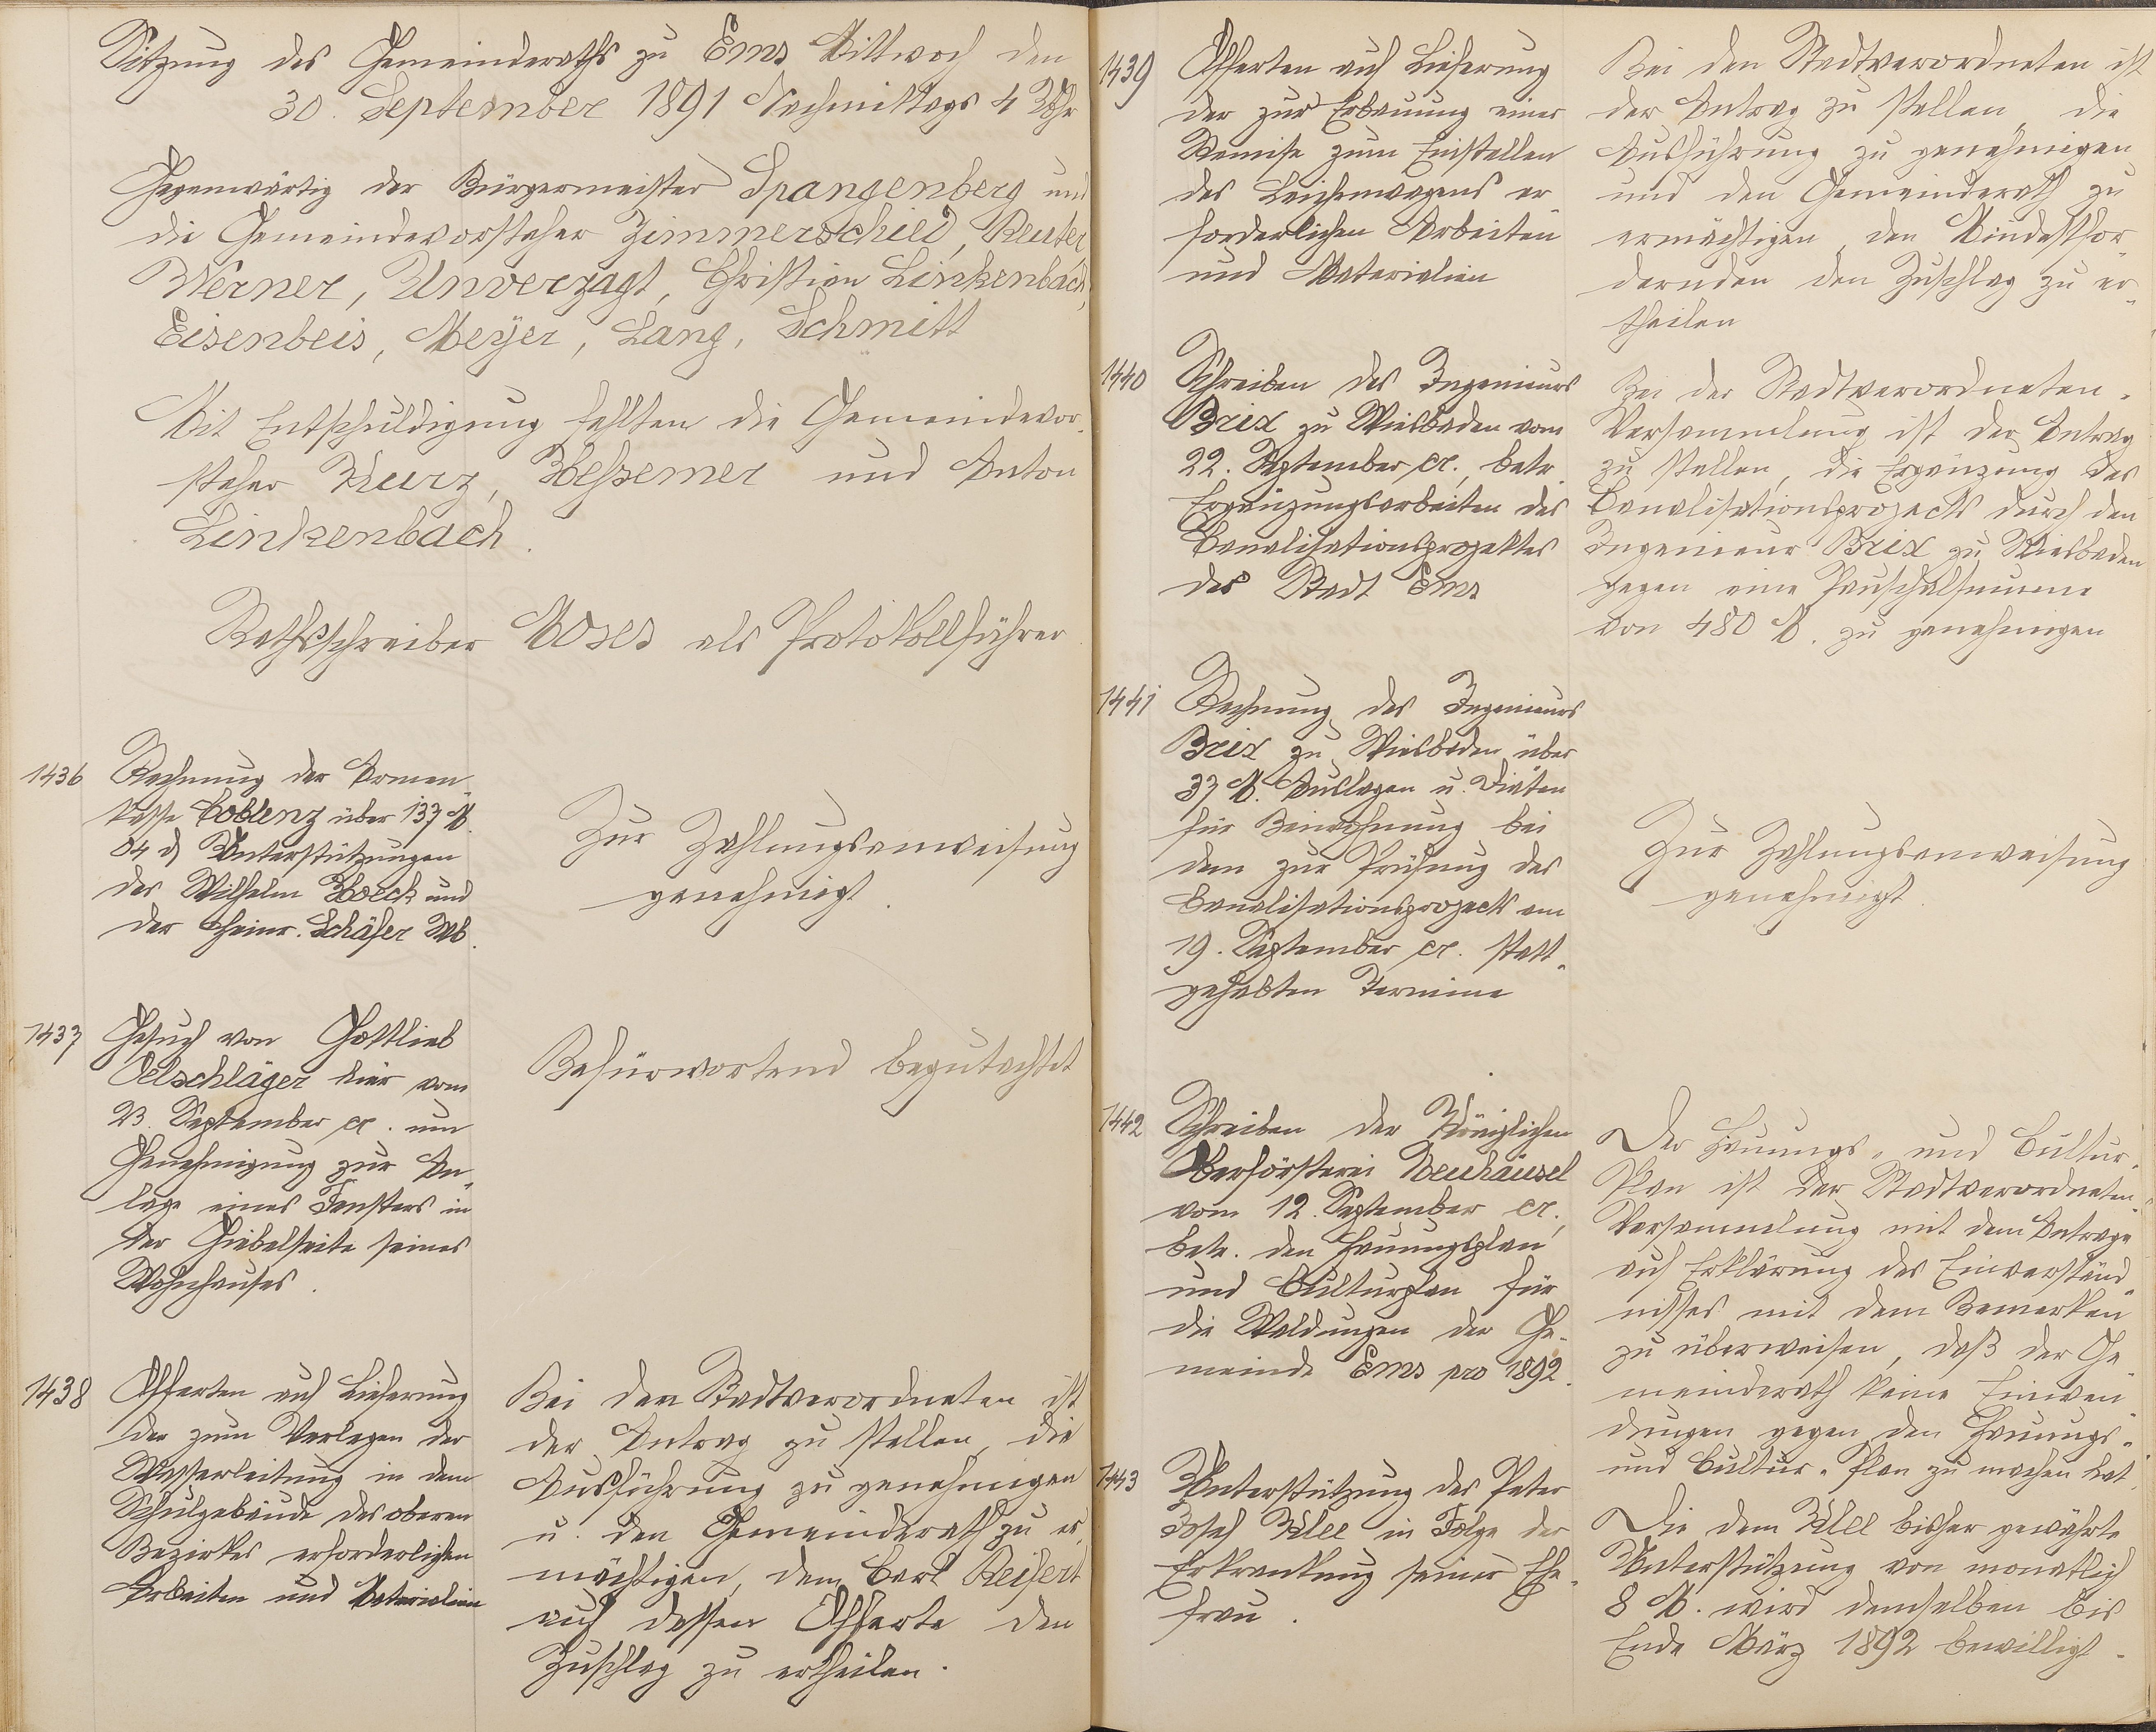 Sitzung des Gemeinderaths zu Ems Mittwoch den
30. September 1891 Nachmittags 4 Uhr
Gegenwärtig der Bürgermeister Spangenberg und
die Gemeindevorsteher Zimmerschied, Reuter
Werner, Unverzagt, Christian Linkenbach,
Eisenbeis, Meyer, Lang, Schmitt
Mit Entschuldigung fehlten die Gemeindevor-
steher Kurz, Hessemer und Anton
Linkenbach.
Rathsschreiber Moses als Protokollführer
1436
Rechnung der Armen-
kasse Coblenz über 137 M.
04 d Unterstützungen
des Wilhelm Hoeck und
der Heinr. Schäfer Wb.
Zur Zahlungsanweisung
genehmigt.
1437
Gesuch von Gottlieb
Oelschläger hier vom
23. September cr. um
Genehmigung zur An-
lage eines Fensters in
der Giebelseite seines
Wohnhauses.
Befürwortend begutachtet
1438
Offerten auf Lieferung
der zum Verlegen der
Wasserleitung in dem
Schulgebäude des oberen
Bezirkes erforderlichen
Arbeiten und Materialien
Bei den Stadtverordneten ist
der Antrag zu stellen, die
Ausführung zu genehmigen
u. den Gemeinderath zu er-
mächtigen, dem Carl Reifert
auf dessen Offerte den
Zuschlag zu ertheilen.
1439
Offerten auf Lieferung
der zur Erbauung einer
Remise zum Einstellen
des Leichenwagens er-
forderlichen Arbeiten
und Materialien
Bei den Stadtverordneten ist
der Antrag zu stellen, die
Ausführung zu genehmigen
und den Gemeinderath zu
ermächtigen, den Mindestfor-
dernden den Zuschlag zu er-
theilen
1440
Schreiben des Ingenieurs
Brix zu Wiesbaden vom
22. September cr., betr.
Ergänzungsarbeiten des
Canalisationsprojektes
der Stadt Ems
Bei der Stadtverordneten-
Versammlung ist der Antrag
zu stellen, die Ergänzung des
Canalisationsprojects durch den
Ingenieur Brix zu Wiesbaden
gegen eine Pauschalsumme
von 480 M. zu genehmigen
1441
Rechnung des Ingenieurs
Brix zu Wiesbaden über
37 M. Auslagen u. Diäten
für Beiwohnung bei
dem zur Prüfung des
Canalisationsprojects am
19. September cr. statt-
gehabten Termine
Zur Zahlungsanweisung
genehmigt.
1442
Schreiben der Königlichen
Oberförsterei Neuhäusel
vom 12. September cr.,
betr. den Hauungsplan
und Culturplan für
die Waldungen der Ge-
meinde Ems pro 1892.
Der Hauungs- und Cultur-
Plan ist der Stadtverordneten-
Versammlung mit dem Antrage
auf Erklärung des Einverständ-
nisses mit dem Bemerken
zu überweisen, daß der Ge-
meinderath keine Einwen-
dungen gegen den Hauungs-
und Cultur-Plan zu machen hat.
1443
Unterstützung des Peter
Josef Klee in Folge der
Erkrankung seiner Ehe-
frau.
Die dem Klee bisher gewährte
Unterstützung von monatlich
8 M. wird demselben bis
Ende März 1892 bewilligt.